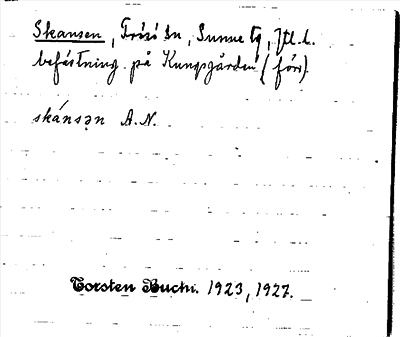 Skansen, Frösö sn, Sunne tg, Jtl. l.
befästning på Kungsgården (förr).
skánsən A.N.
Torsten Bucht. 1923, 1927.